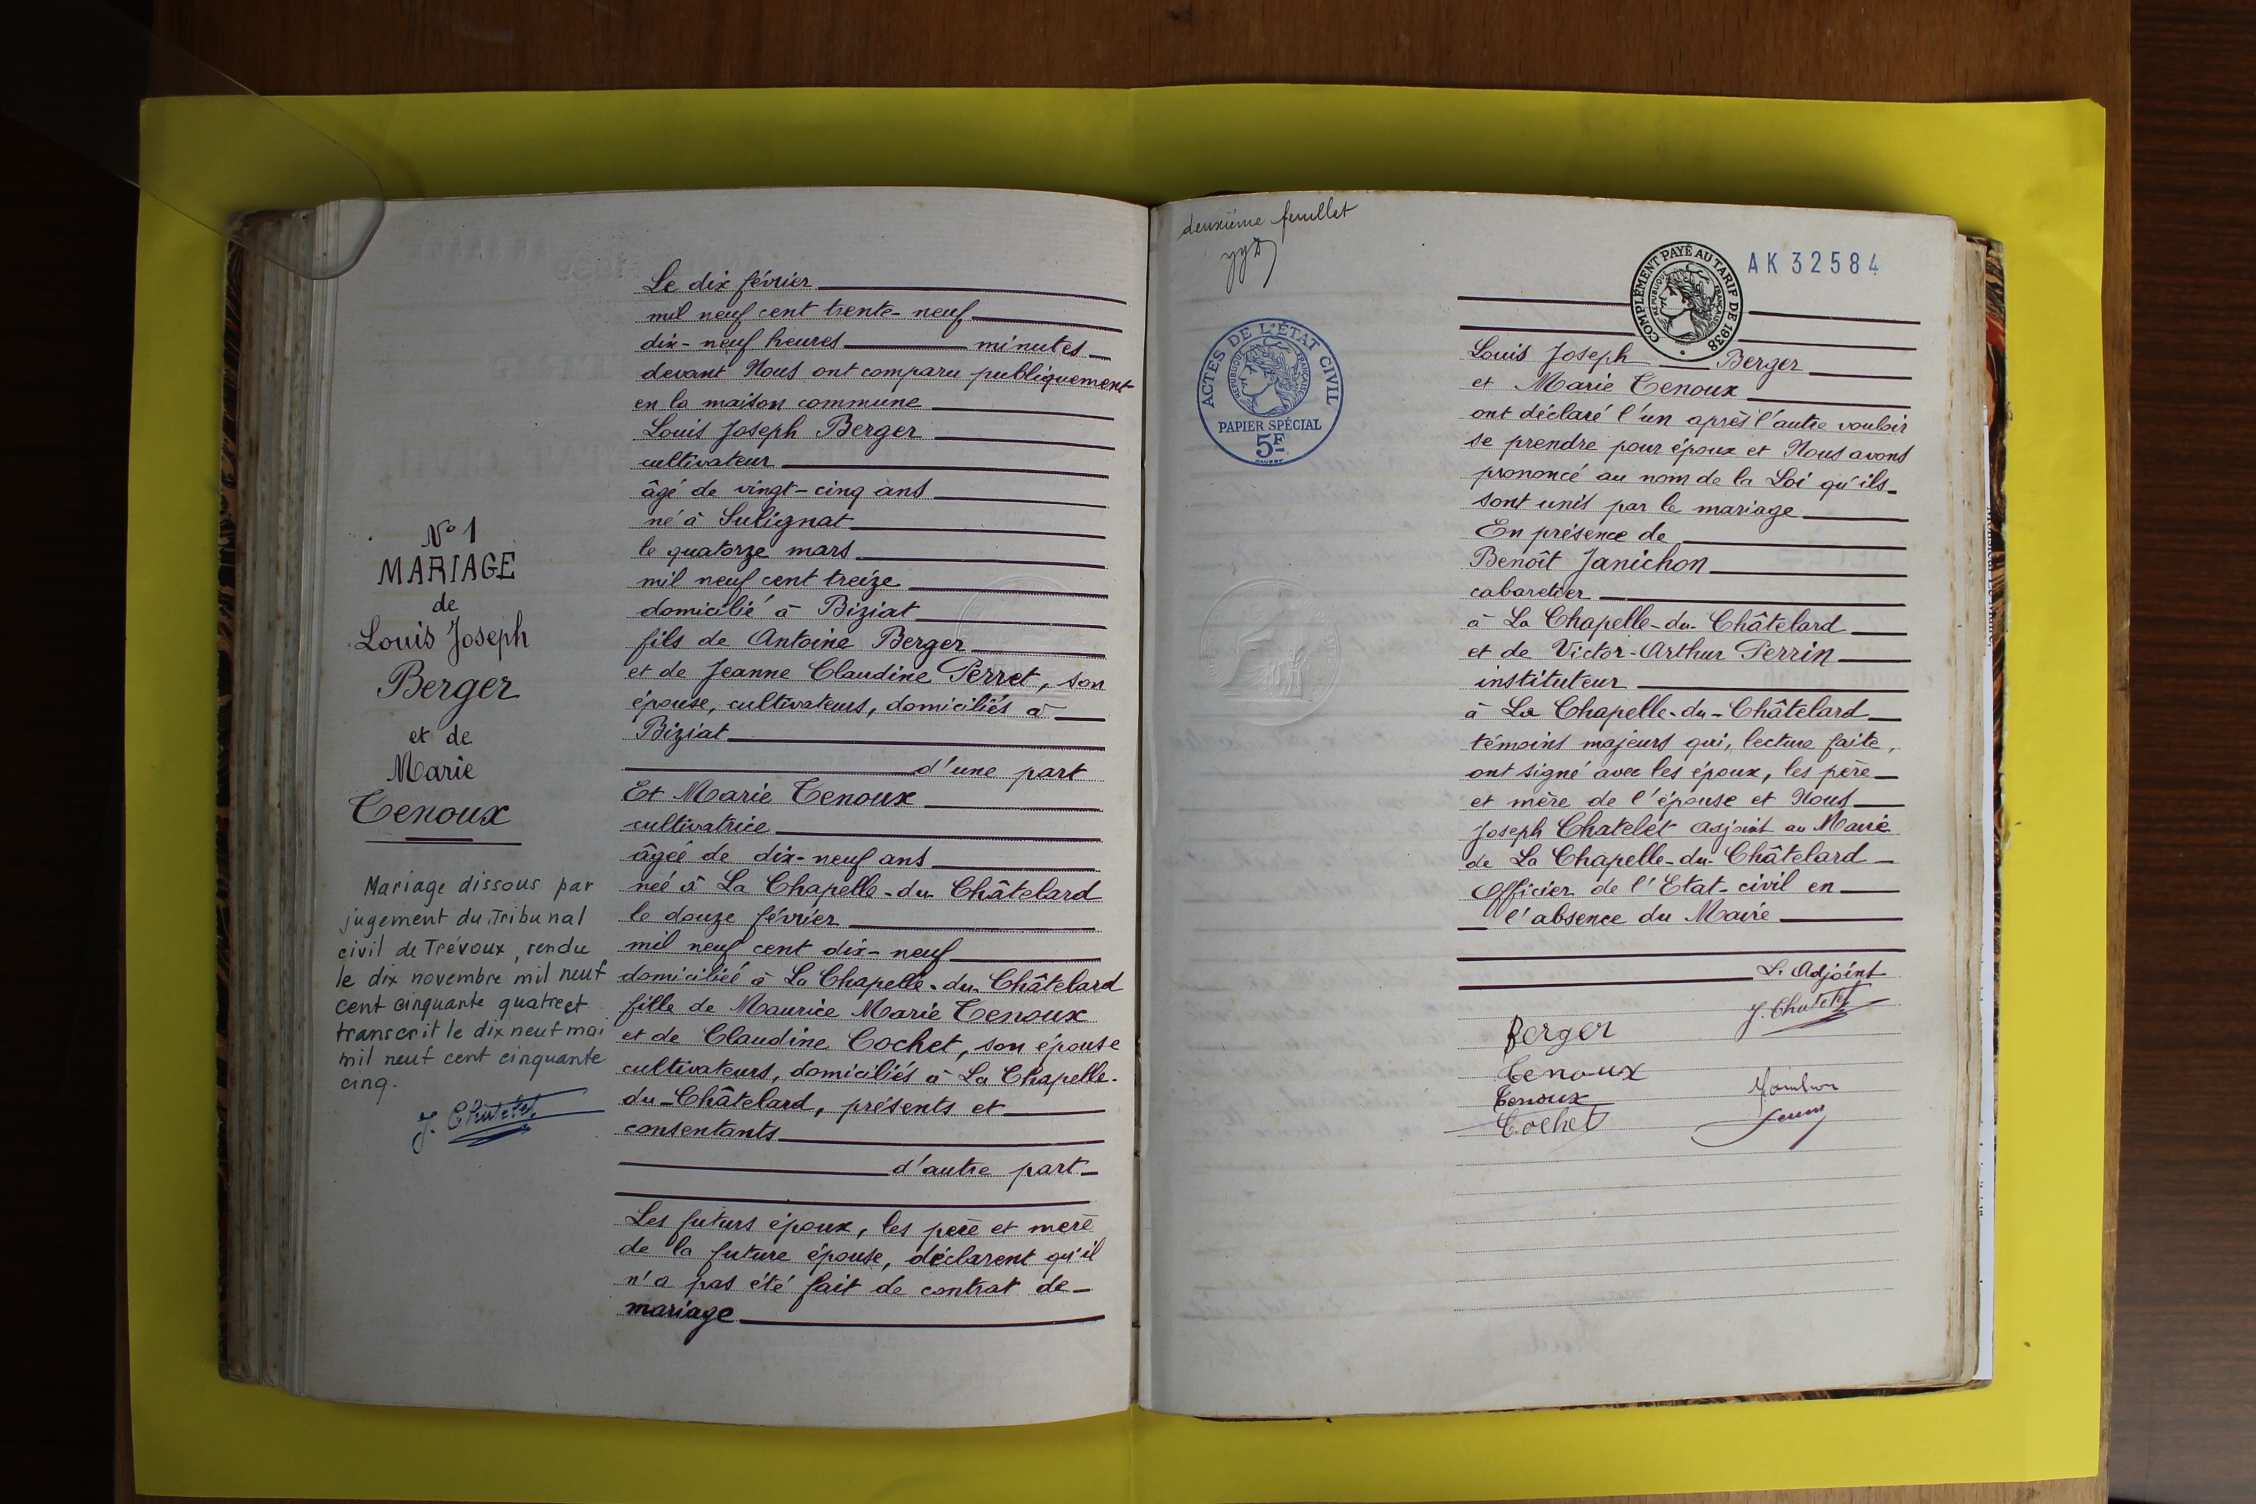 N° 1
MARIAGE
de
Louis Joseph
Berger
et de
Marie
Tenoux
Mariage dissous par
jugement du Tribunal
civil de Trévoux, rendu
le dix novembre mil neuf
cent cinquante quatre et
transcrit le dix neuf mai
mil neuf cent cinquante
cinq.
J. Chatelet
Le dix février
mil neuf cent trente-neuf
dix-neuf heures minutes
devant Nous ont comparu publiquement
en la maison commune
Louis Joseph Berger
cultivateur
âgé de vingt-cinq ans
né à Sulignat
le quatorze mars
mil neuf cent treize
domicilié à Biziat
fils de Antoine Berger
et de Jeanne Claudine Perret, son
épouse, cultivateurs, domiciliés à
Biziat
d'une part
Et Marie Tenoux
cultivatrice
âgée de dix-neuf ans
née à La Chapelle-du-Châtelard
le douze février
mil neuf cent dix-neuf
domiciliée à La Chapelle-du-Châtelard
fille de Maurice Marie Tenoux
et de Claudine Cochet, son épouse
cultivateurs, domiciliés à La Chapelle-
du-Châtelard, présents et
consentants
d'autre part
Les futurs époux, les père et mère
de la future épouse, déclarent qu'il
n'a pas été fait de contrat de
mariage
deuxième feuillet
ACTES DE L'ÉTAT CIVIL
RÉPUBLIQUE FRANÇAISE
PAPIER SPÉCIAL
5F
COMPLÉMENT PAYÉ AU TARIF DE 1938
RÉPUBLIQUE FRANÇAISE
AK 32584
Louis Joseph Berger
et Marie Tenoux
ont déclaré l'un après l'autre vouloir
se prendre pour époux et Nous avons
prononcé au nom de la Loi qu'ils
sont unis par le mariage
En présence de
Benoît Janichon
cabaretier
à La Chapelle-du-Châtelard
et de Victor-Arthur Perrin
instituteur
à La Chapelle-du-Châtelard
témoins majeurs qui, lecture faite,
ont signé avec les époux, les père
et mère de l'épouse et Nous
Joseph Chatelet Adjoint au Maire
de La Chapelle-du-Châtelard
Officier de l'Etat-civil en
l'absence du Maire
L'Adjoint
J. Chatelet
Berger
Tenoux
Tenoux
Cochet